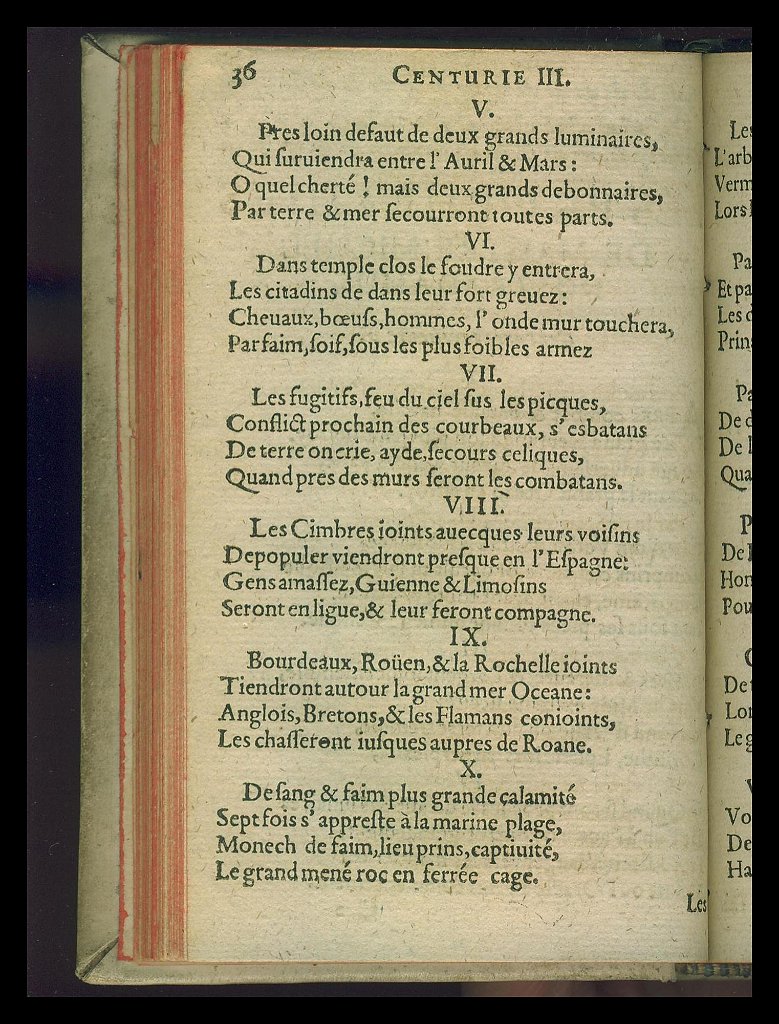 36 CENTURIE III.
V.
Pres loin defaut de deux grands luminaires,
Qui ſuruiendra entre l' Auril & Mars :
O quel cherté ! mais deux grands debonnaires,
Par terre & mer ſecourront toutes parts.
VI.
Dans temple clos le foudre y entrera,
Les citadins de dans leur fort greuez :
Cheuaux, bœufs, hommes, l' onde mur touchera,
Par faim, ſoif, ſous les plus foibles armez
VII.
Les fugitifs, feu du ciel ſus les picques,
Conflict prochain des courbeaux, s' esbatans
De terre on crie, ayde, ſecours celiques,
Quand pres des murs ſeront les combatans.
VIII.
Les Cimbres ioints auecques leurs voiſins
Depopuler viendront preſque en l'Eſpagne:
Gens amaſſez, Guienne & Limoſins
Seront en ligue, & leur feront compagne.
IX.
Bourdeaux, Roüen, & la Rochelle ioints
Tiendront autour la grand mer Oceane :
Anglois, Bretons, & les Flamans conioints,
Les chaſſeront iuſques aupres de Roane.
X.
De ſang & faim plus grande calamité
Sept fois s' appreſte à la marine plage,
Monech de faim, lieu prins, captiuité,
Le grand mené roc en ferrée cage.
Les